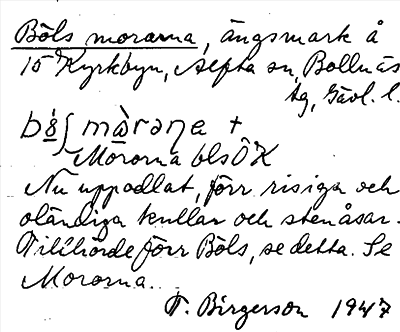 Böls morarna, ängsmark å
15 Kyrkbyn, Alfta sn, Bollnäs
tg, Gävl. l.
Mororna bls ÖK
Nu uppodlat, förr risiga och
oländiga kullar och stenåsar.
Tillhörde förr Böls, se detta. Se
Mororna.
F. Birgerson 1947